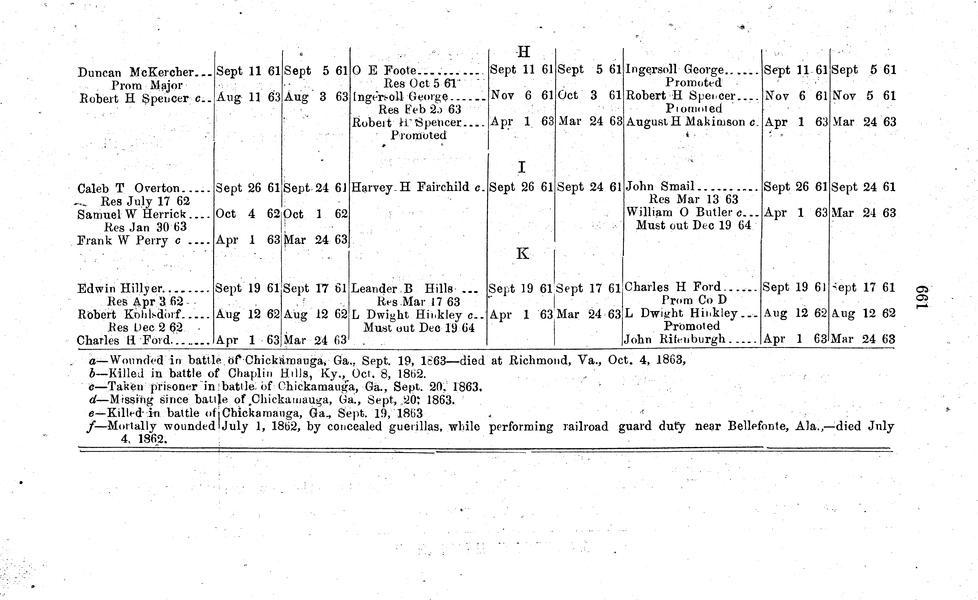 H
Duncan McKercher... Sept 11 61 Sept 5 61 O E Foote.......... Sept 11 61 Sept 5 61 Ingersoll George...... Sept 11 61 Sept 5 61
Prom Major Res Oct 5 61 Promoted
Robert H Spencer c.. Aug 11 63 Aug 3 63 Ingersoll George...... Nov 6 61 Oct 3 61 Robert H Spencer.... Nov 6 61 Nov 5 61
Res Feb 25 63 Promoted
Robert H Spencer.... Apr 1 63 Mar 24 63 August H Makimson c. Apr 1 63 Mar 24 63
Promoted
I
Caleb T Overton..... Sept 26 61 Sept 24 61 Harvey H Fairchild c. Sept 26 61 Sept 24 61 John Smail.......... Sept 26 61 Sept 24 61
Res July 17 62 Res Mar 13 63
Samuel W Herrick.... Oct 4 62 Oct 1 62 William O Butler c... Apr 1 63 Mar 24 63
Res Jan 30 63 Must out Dec 19 64
Frank W Perry c .... Apr 1 63 Mar 24 63
K
Edwin Hillyer........ Sept 19 61 Sept 17 61 Leander B Hills ... Sept 19 61 Sept 17 61 Charles H Ford...... Sept 19 61 Sept 17 61
Res Apr 3 62 Res Mar 17 63 Prom Co D
Robert Kohlsdorf..... Aug 12 62 Aug 12 62 L Dwight Hinkley c.. Apr 1 63 Mar 24 63 L Dwight Hinkley... Aug 12 62 Aug 12 62
Res Dec 2 62 Must out Dec 19 64 Promoted
Charles H Ford...... Apr 1 63 Mar 24 63 John Ritenburgh..... Apr 1 63 Mar 24 63
a—Wounded in battle of Chickamauga, Ga., Sept. 19, 1863—died at Richmond, Va., Oct. 4, 1863,
b—Killed in battle of Chaplin Hills, Ky., Oct. 8, 1862.
c—Taken prisoner in battle of Chickamauga, Ga., Sept. 20, 1863.
d—Missing since battle of Chickamauga, Ga., Sept, 20, 1863.
e—Killed in battle of Chickamauga, Ga., Sept. 19, 1863
f—Mortally wounded July 1, 1862, by concealed guerillas, while performing railroad guard duty near Bellefonte, Ala.,—died July
4, 1862.
661